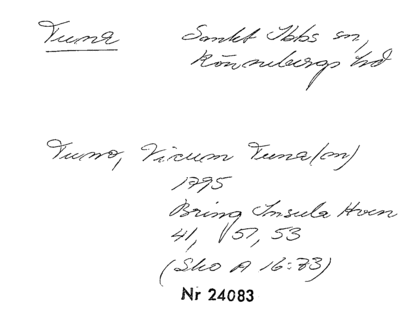 Tuna Sankt Ibbs sn,
Rönnebergs hd
Tuno, Vicum Tuna(m)
1795
Bring Insula Hven
41, 51, 53
(Sko A 16:83)
Nr 24083